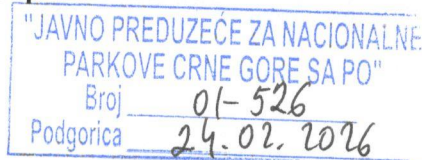 "JAVNO PREDUZEĆE ZA NACIONALNE
PARKOVE CRNE GORE SA PO"
Broj 01-526
Podgorica 24.02.2026